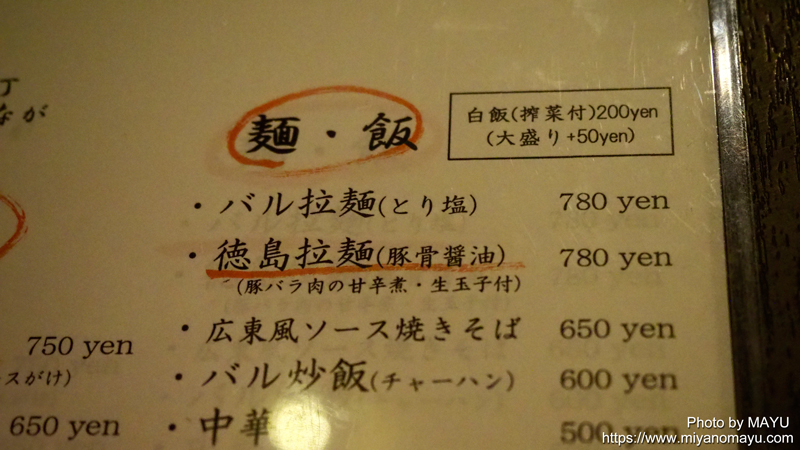 丁
なが
麺・飯
白飯(搾菜付)200yen
(大盛り+50yen)
・バル拉麺(とり塩) 780 yen
・徳島拉麺(豚骨醤油) 780 yen
(豚バラ肉の甘辛煮・生玉子付)
・広東風ソース焼きそば 650 yen
・バル炒飯(チャーハン) 600 yen
・中華 500 yen
750 yen
スがけ)
650 yen
Photo by MAYU
https://www.miyanomayu.com/